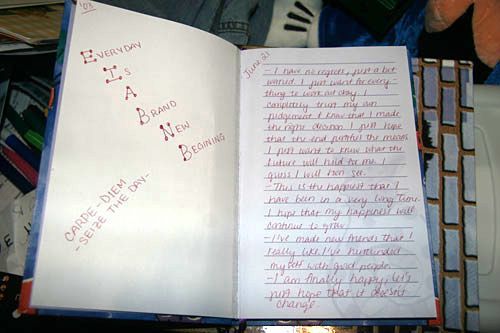 '03
EVERYDAY
IS
A
BRAND
NEW
BEGINING
CARPE-DIEM
-SEIZE THE DAY-
June 21
- I have no regrets, just a bit
worried. I just want for every-
thing to work out okay. I
completely trust my own
judgement & know that I made
the right decision. I just hope
that the end justifies the means.
I just want to know what the
future will hold for me. I
guess I will soon see.
- This is the happiest that I
have been in a very long time.
I hope that my happiness will
continue to grow.
- I've made new friends that I
really like. I've surrounded
myself with good people.
- I am finally happy, let's
just hope that it doesn't
change.